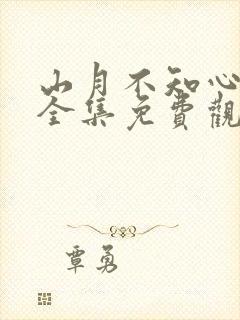 山月不知心
全集免費觀
覃勇